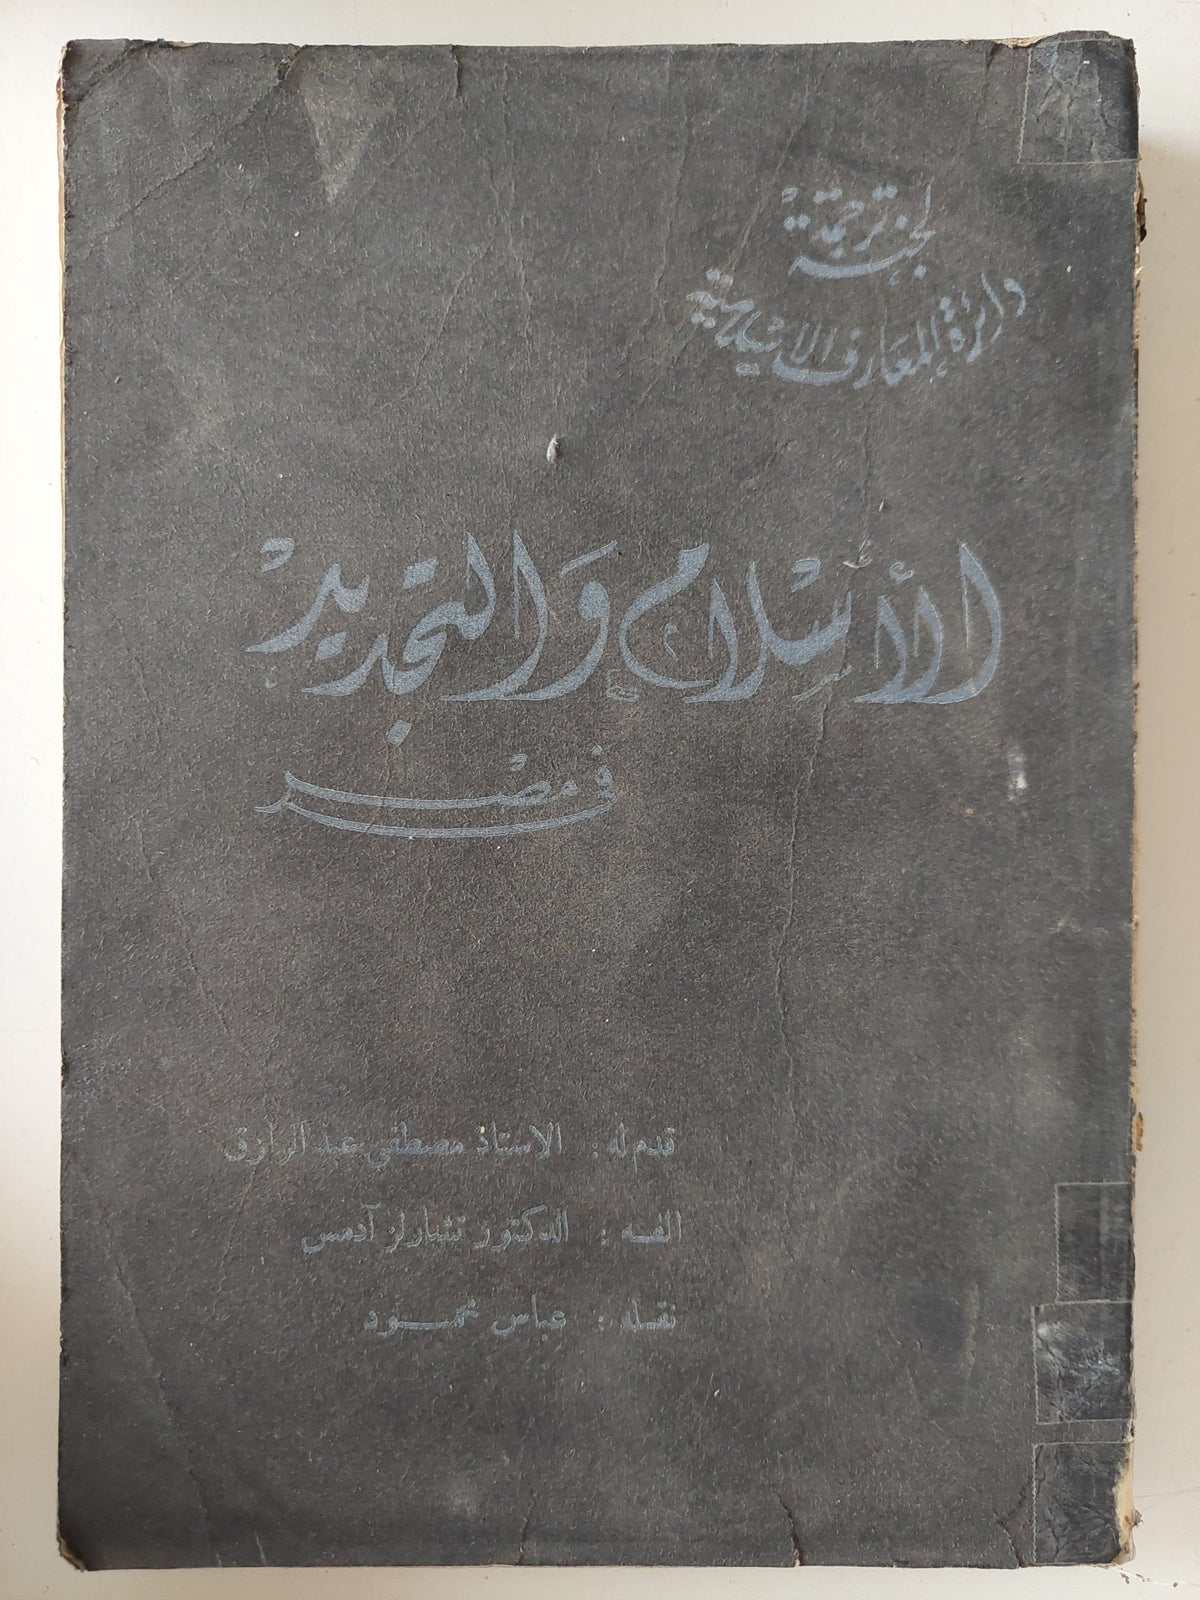 لجنة ترجمة
دائرة المعارف الإسلامية
الأسلام والتجديد
في مصر
قدم له : الاستاذ مصطفى عبد الرازق
الفه : الدكتور تشارلز آدمس
نقله : عباس محمود